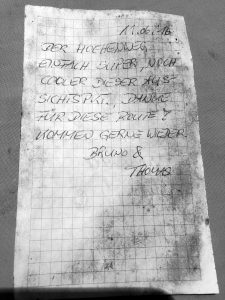 11.06.16
DER HÖHENWEG
EINFACH SUPER, NOCH
COOLER DIESER AUS-
SICHTSPKT. DANKE
FÜR DIESE ROUTE!
KOMMEN GERNE WIEDER
BRUNO &
THOMAS